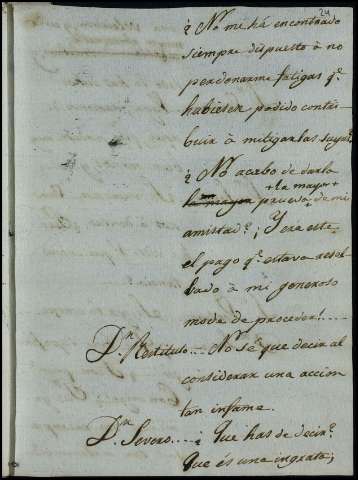 24
¿ No me há encontrado
siempre dispuesto à no
perdonarme fatigas q.e
habiesen podido contri
buir à mitigarlas suyas?
¿ No acabo de darla
+ la mayor +
prueva de mi
amistad? ¡ Y era este
el pago q.e estava reser
bado à mi generoso
modo de proceder!....
D.n Restituto... No sé que decir al
considerar una accion
tan infame.
D.n Severo.... ¿ Que has de decir?
Que és una ingrata;